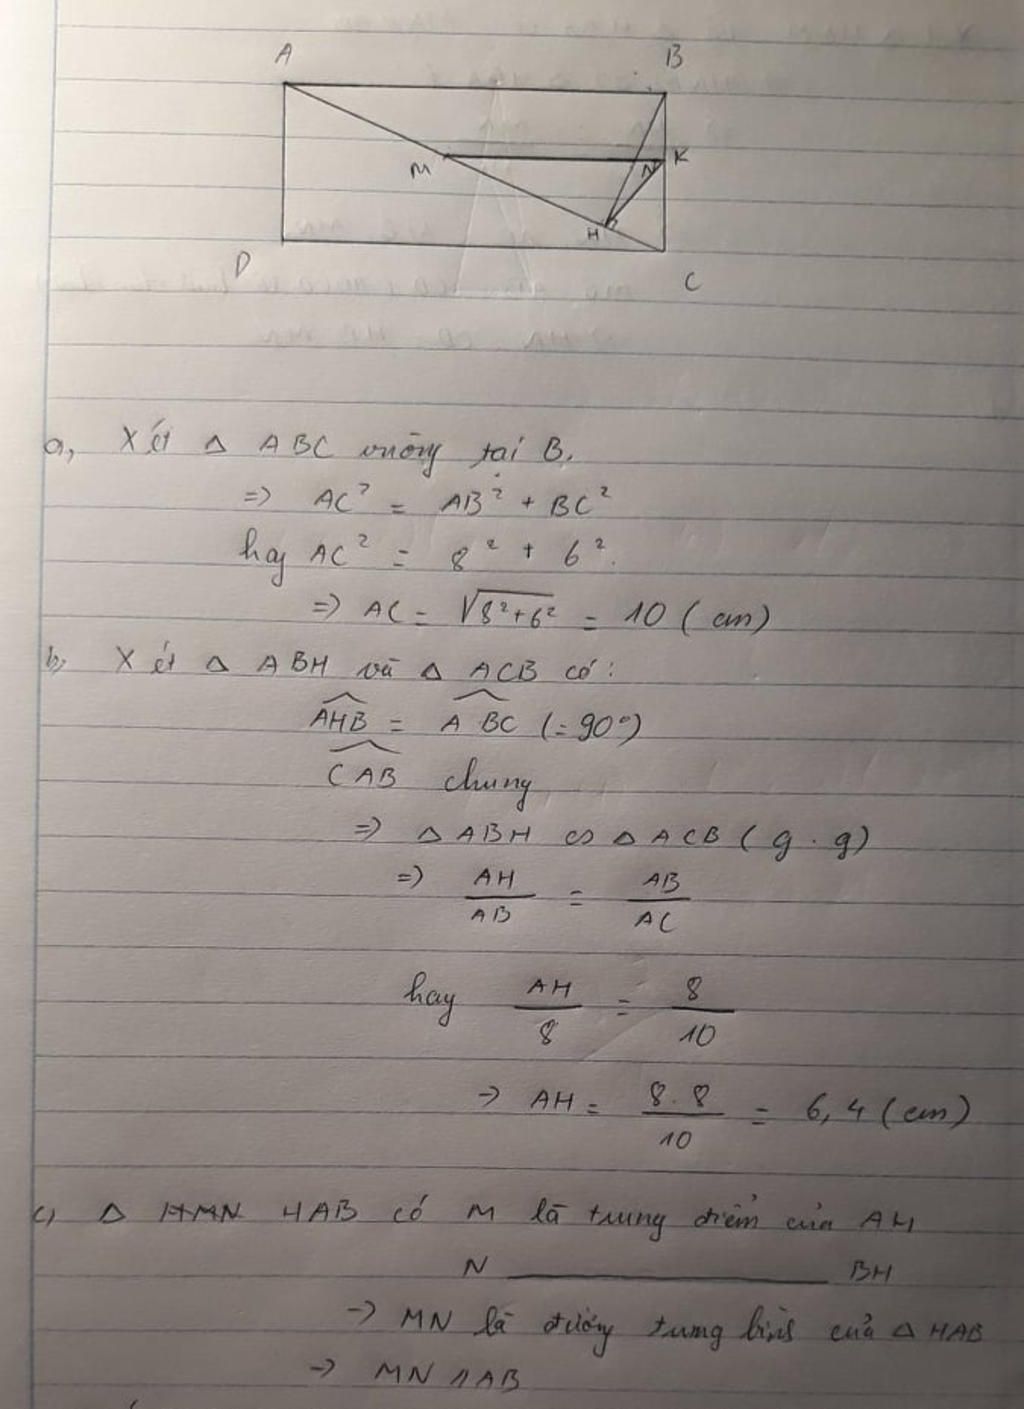 A B
M N K
H
D C
a, Xét △ ABC vuông tại B.
=> AC² = AB² + BC²
hay AC² = 8² + 6².
=> AC = √8²+6² = 10 (cm)
b, Xét △ ABH và △ ACB có:
AHB = ABC (=90°)
CAB chung
=> △ ABH ∽ △ ACB (g.g)
=> AH/AB = AB/AC
hay AH/8 = 8/10
-> AH = 8.8/10 = 6,4 (cm)
c, △ HMN HAB có M là trung điểm của AH
N ———— BH
-> MN là đường trung bình của △ HAB
-> MN // AB